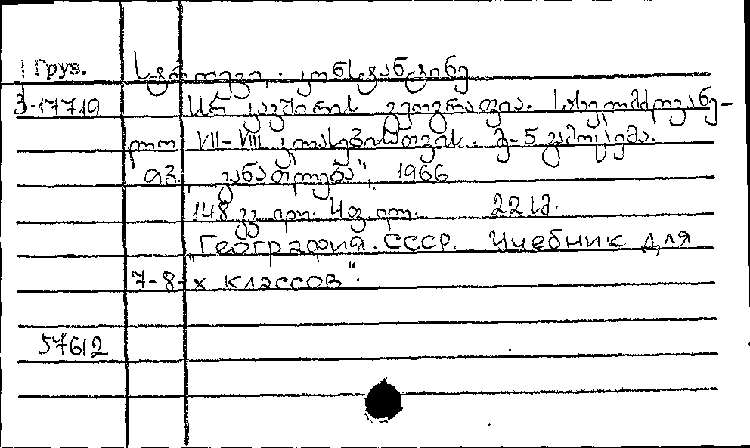 Груз.
3-17719
სტროევი, კონსტანტინე
სსრ კავშირის გეოგრაფია. სახელმძღვანე-
ლო VII-VIII კლასებისთვის. მ-5 გამოცემა.
თბ. "განათლება", 1966
148 გვ. ილ. 4 ფ. ილ. 22 სმ.
"География. СССР. Учебник для
7-8-х классов".
57612